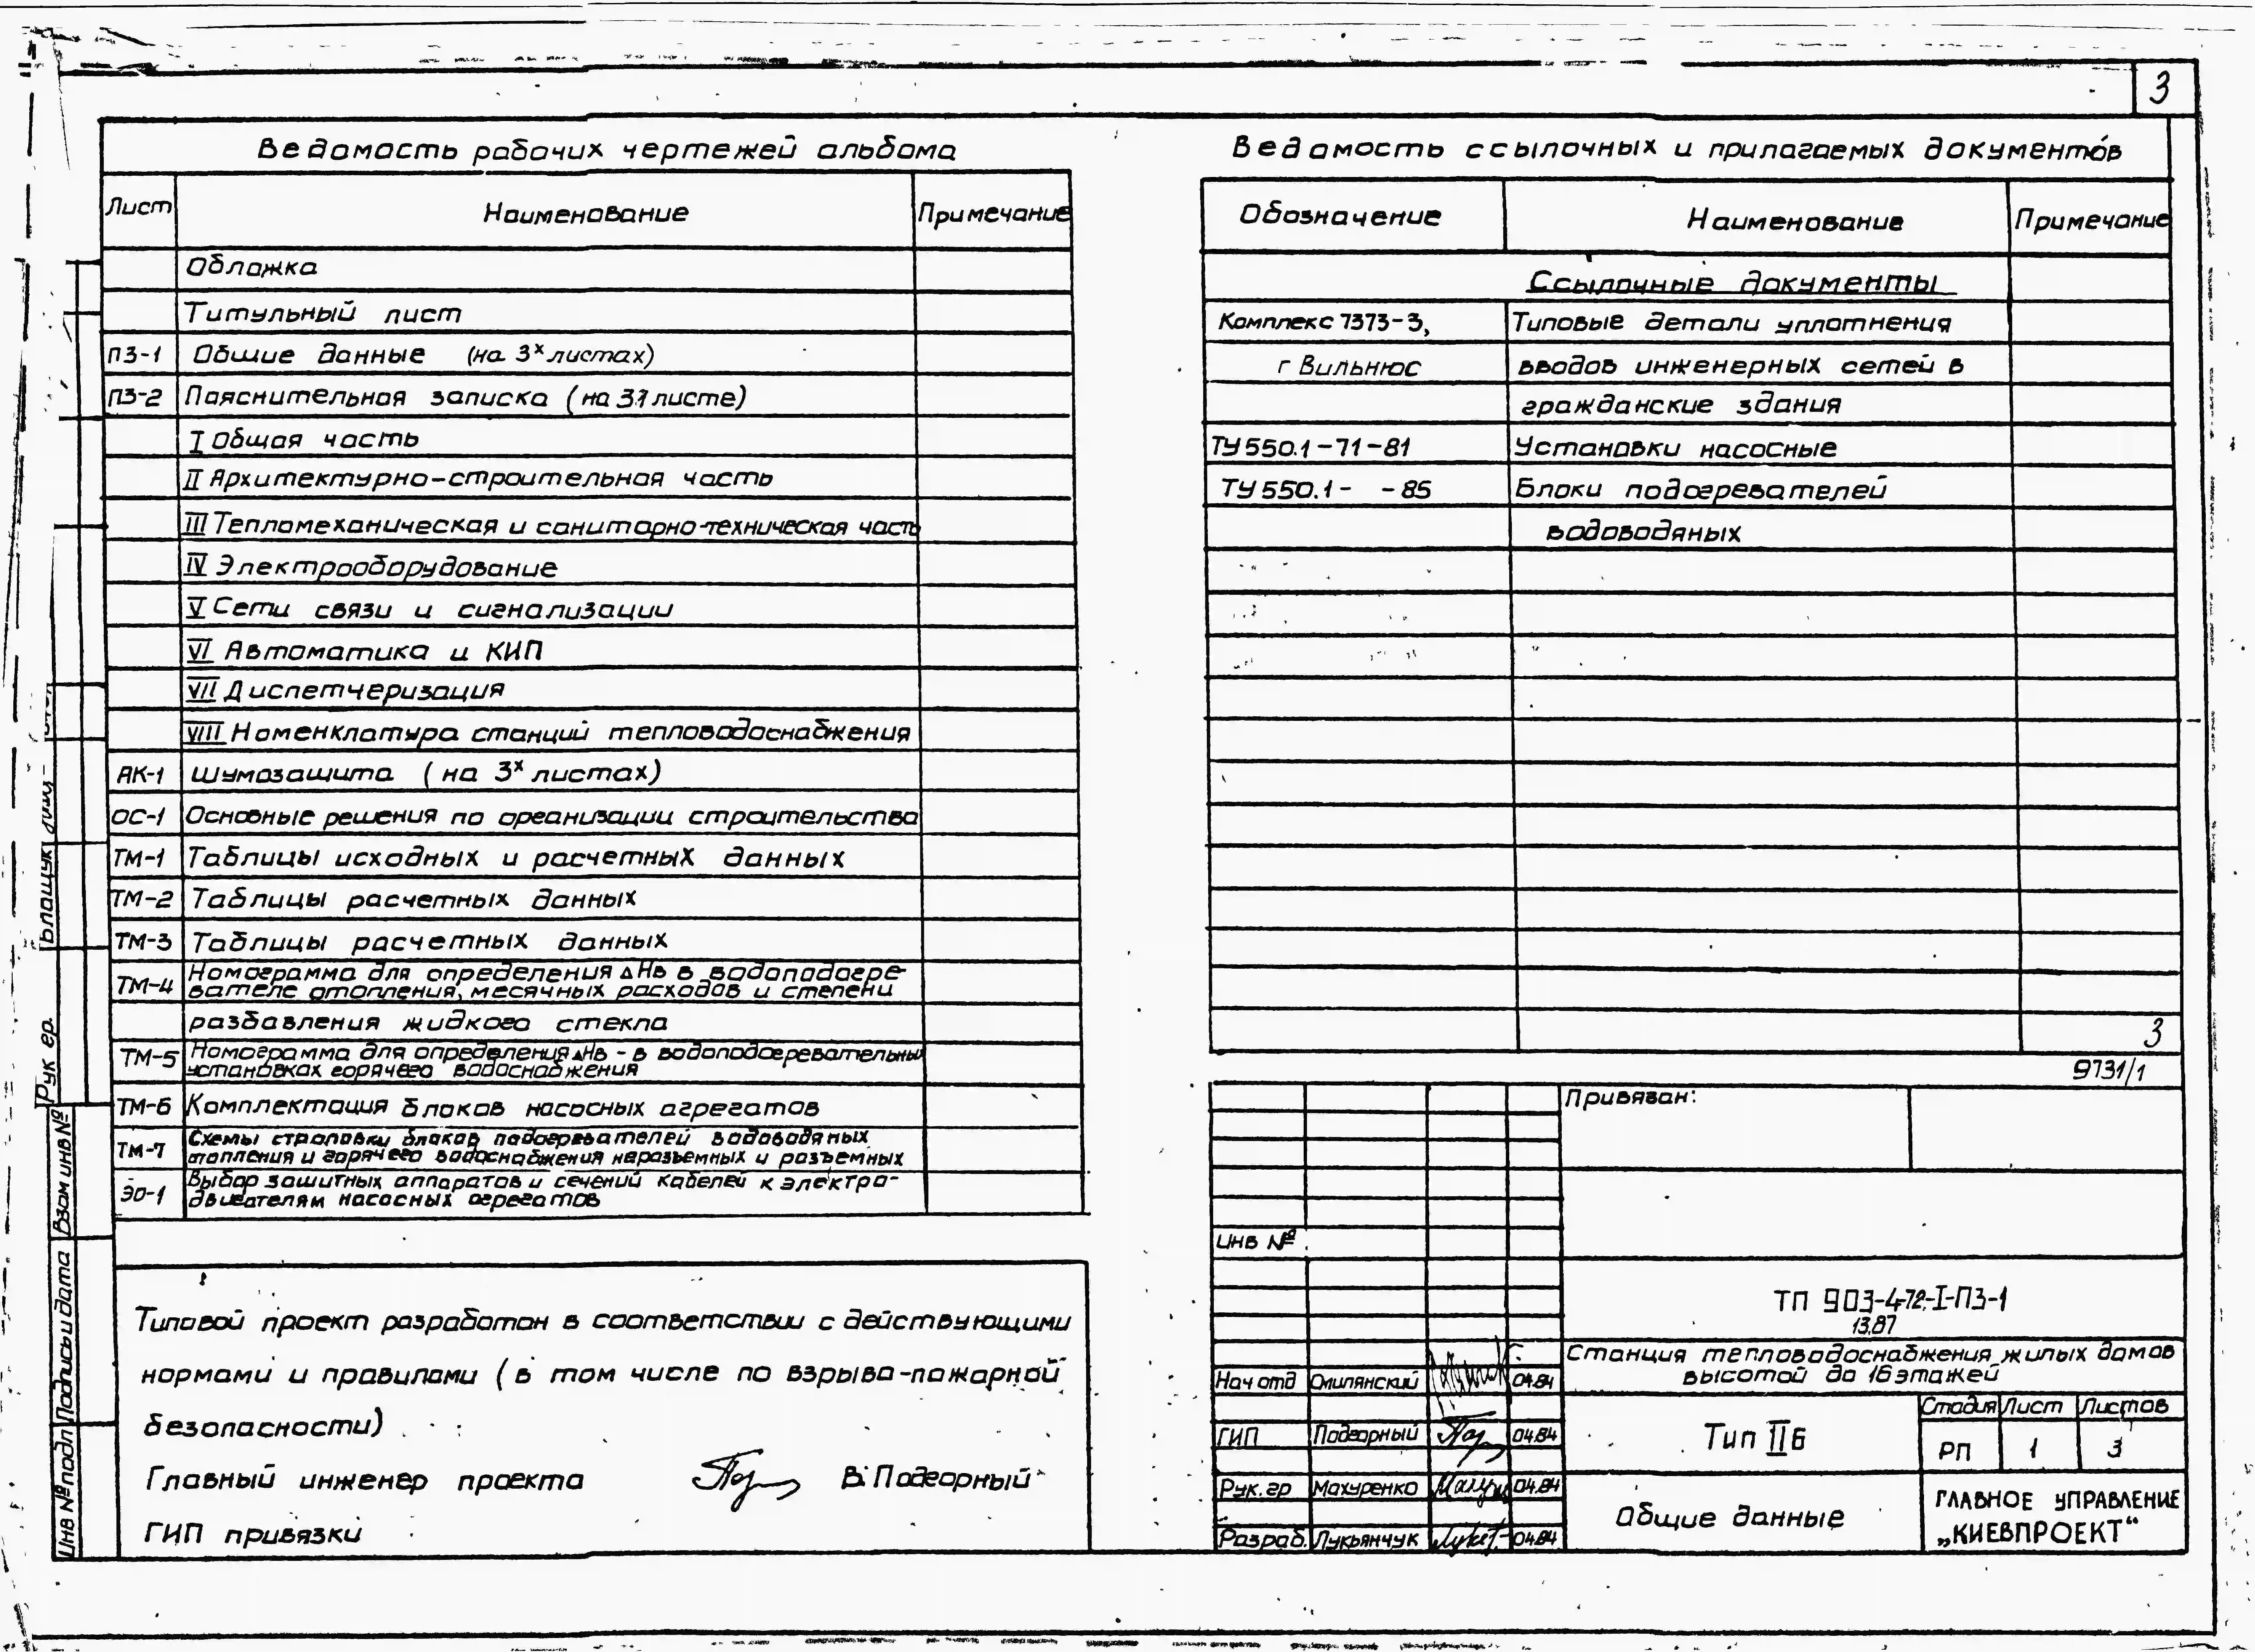 3
Ведомость рабочих чертежей альбома
Лист Наименование Примечание
Обложка
Титульный лист
ПЗ-1 Общие данные (на 3х листах)
ПЗ-2 Пояснительная записка (на 31 листе)
I Общая часть
II Архитектурно-строительная часть
III Тепломеханическая и санитарно-техническая часть
IV Электрооборудование
V Сети связи и сигнализации
VI Автоматика и КИП
VII Диспетчеризация
VIII Номенклатура станций тепловодоснабжения
АК-1 Шумозащита (на 3х листах)
ОС-1 Основные решения по организации строительства
ТМ-1 Таблицы исходных и расчетных данных
ТМ-2 Таблицы расчетных данных
ТМ-3 Таблицы расчетных данных
ТМ-4 Номограмма для определения ΔНв в водоподогре-
вателе отопления, месячных расходов и степени
разбавления жидкого стекла
ТМ-5 Номограмма для определения ΔНв - в водоподогревательных
установках горячего водоснабжения
ТМ-6 Комплектация блоков насосных агрегатов
ТМ-7 Схемы строповки блоков подогревателей водоводяных
отопления и горячего водоснабжения неразъемных и разъемных
ЭО-1 Выбор защитных аппаратов и сечений кабелей к электро-
двигателям насосных агрегатов
Типовой проект разработан в соответствии с действующими
нормами и правилами (в том числе по взрыво-пожарной
безопасности)
Главный инженер проекта В. Подгорный
ГИП привязки
Ведомость ссылочных и прилагаемых документов
Обозначение Наименование Примечание
Ссылочные документы
Комплекс 7373-3, Типовые детали уплотнения
г Вильнюс вводов инженерных сетей в
гражданские здания
ТУ 550.1-71-81 Установки насосные
ТУ 550.1- -85 Блоки подогревателей
водоводяных
3
9731/1
Привязан:
Инв №
ТП 903-4-72-I-ПЗ-1
13.87
Станция тепловодоснабжения жилых домов
высотой до 16 этажей
Нач отд Омилянский 04.84
ГИП Подгорный 04.84
Рук. гр Махуренко 04.84
Разраб. Лукьянчук 04.84
Тип IIб
Стадия Лист Листов
РП 1 3
Общие данные
ГЛАВНОЕ УПРАВЛЕНИЕ
„КИЕВПРОЕКТ“
Рук гр.
Взам инв №
Подпись и дата
Инв № подл